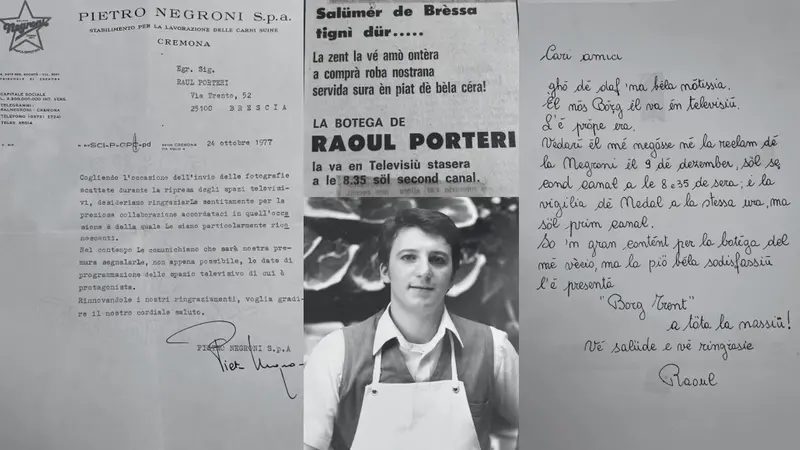 Negroni
PIETRO NEGRONI S.p.a.
STABILIMENTO PER LA LAVORAZIONE DELLE CARNI SUINE
CREMONA
CAPITALE SOCIALE
TELEGRAMMI
Egr. Sig.
RAUL PORTERI
Via Trento, 52
25100 BRESCIA
24 ottobre 1977
Cogliendo l'occasione dell'invio delle fotografie
scattate durante la ripresa degli spazi televisi-
vi, desideriamo ringraziarLa sentitamente per la
preziosa collaborazione accordataci in quell'occa
sione e della quale Le siamo particolarmente rico
noscenti.
Nel contempo Le comunichiamo che sarà nostra pre-
mura segnalarLe, non appena possibile, le date di
programmazione dello spazio televisivo di cui è
protagonista.
RinnovandoLe i nostri ringraziamenti, voglia gradi-
re il nostro cordiale saluto.
PIETRO NEGRONI S.p.A
Salümér de Brèssa
tignì dür.....
La zent la vé amò ontèra
a comprà roba nostrana
servida sura èn piat dè bèla céra!
LA BOTEGA DE
RAOUL PORTERI
la va en Televisiù stasera
a le 8.35 söl second canal.
Cari amici
ghó dé daf 'ma bèla nótissia.
Èl nòs Bórg él va én televisiù.
L'é própe era.
Vedarì él mé negósse né la reclam dé
la Negroni él 9 dé dezember, söl se
cond canal a le 8 e 35 de sera; e la
vigilia dé Nedal a la stessa ura, ma
söl prim canal.
So 'n gran contént per la botéga del
mé vècio, ma la piö béla sodisfassiù
l'é presentà
"Borg Trent"
a töta la nassiù!
Vé salüde e vé ringrasie
Raoul